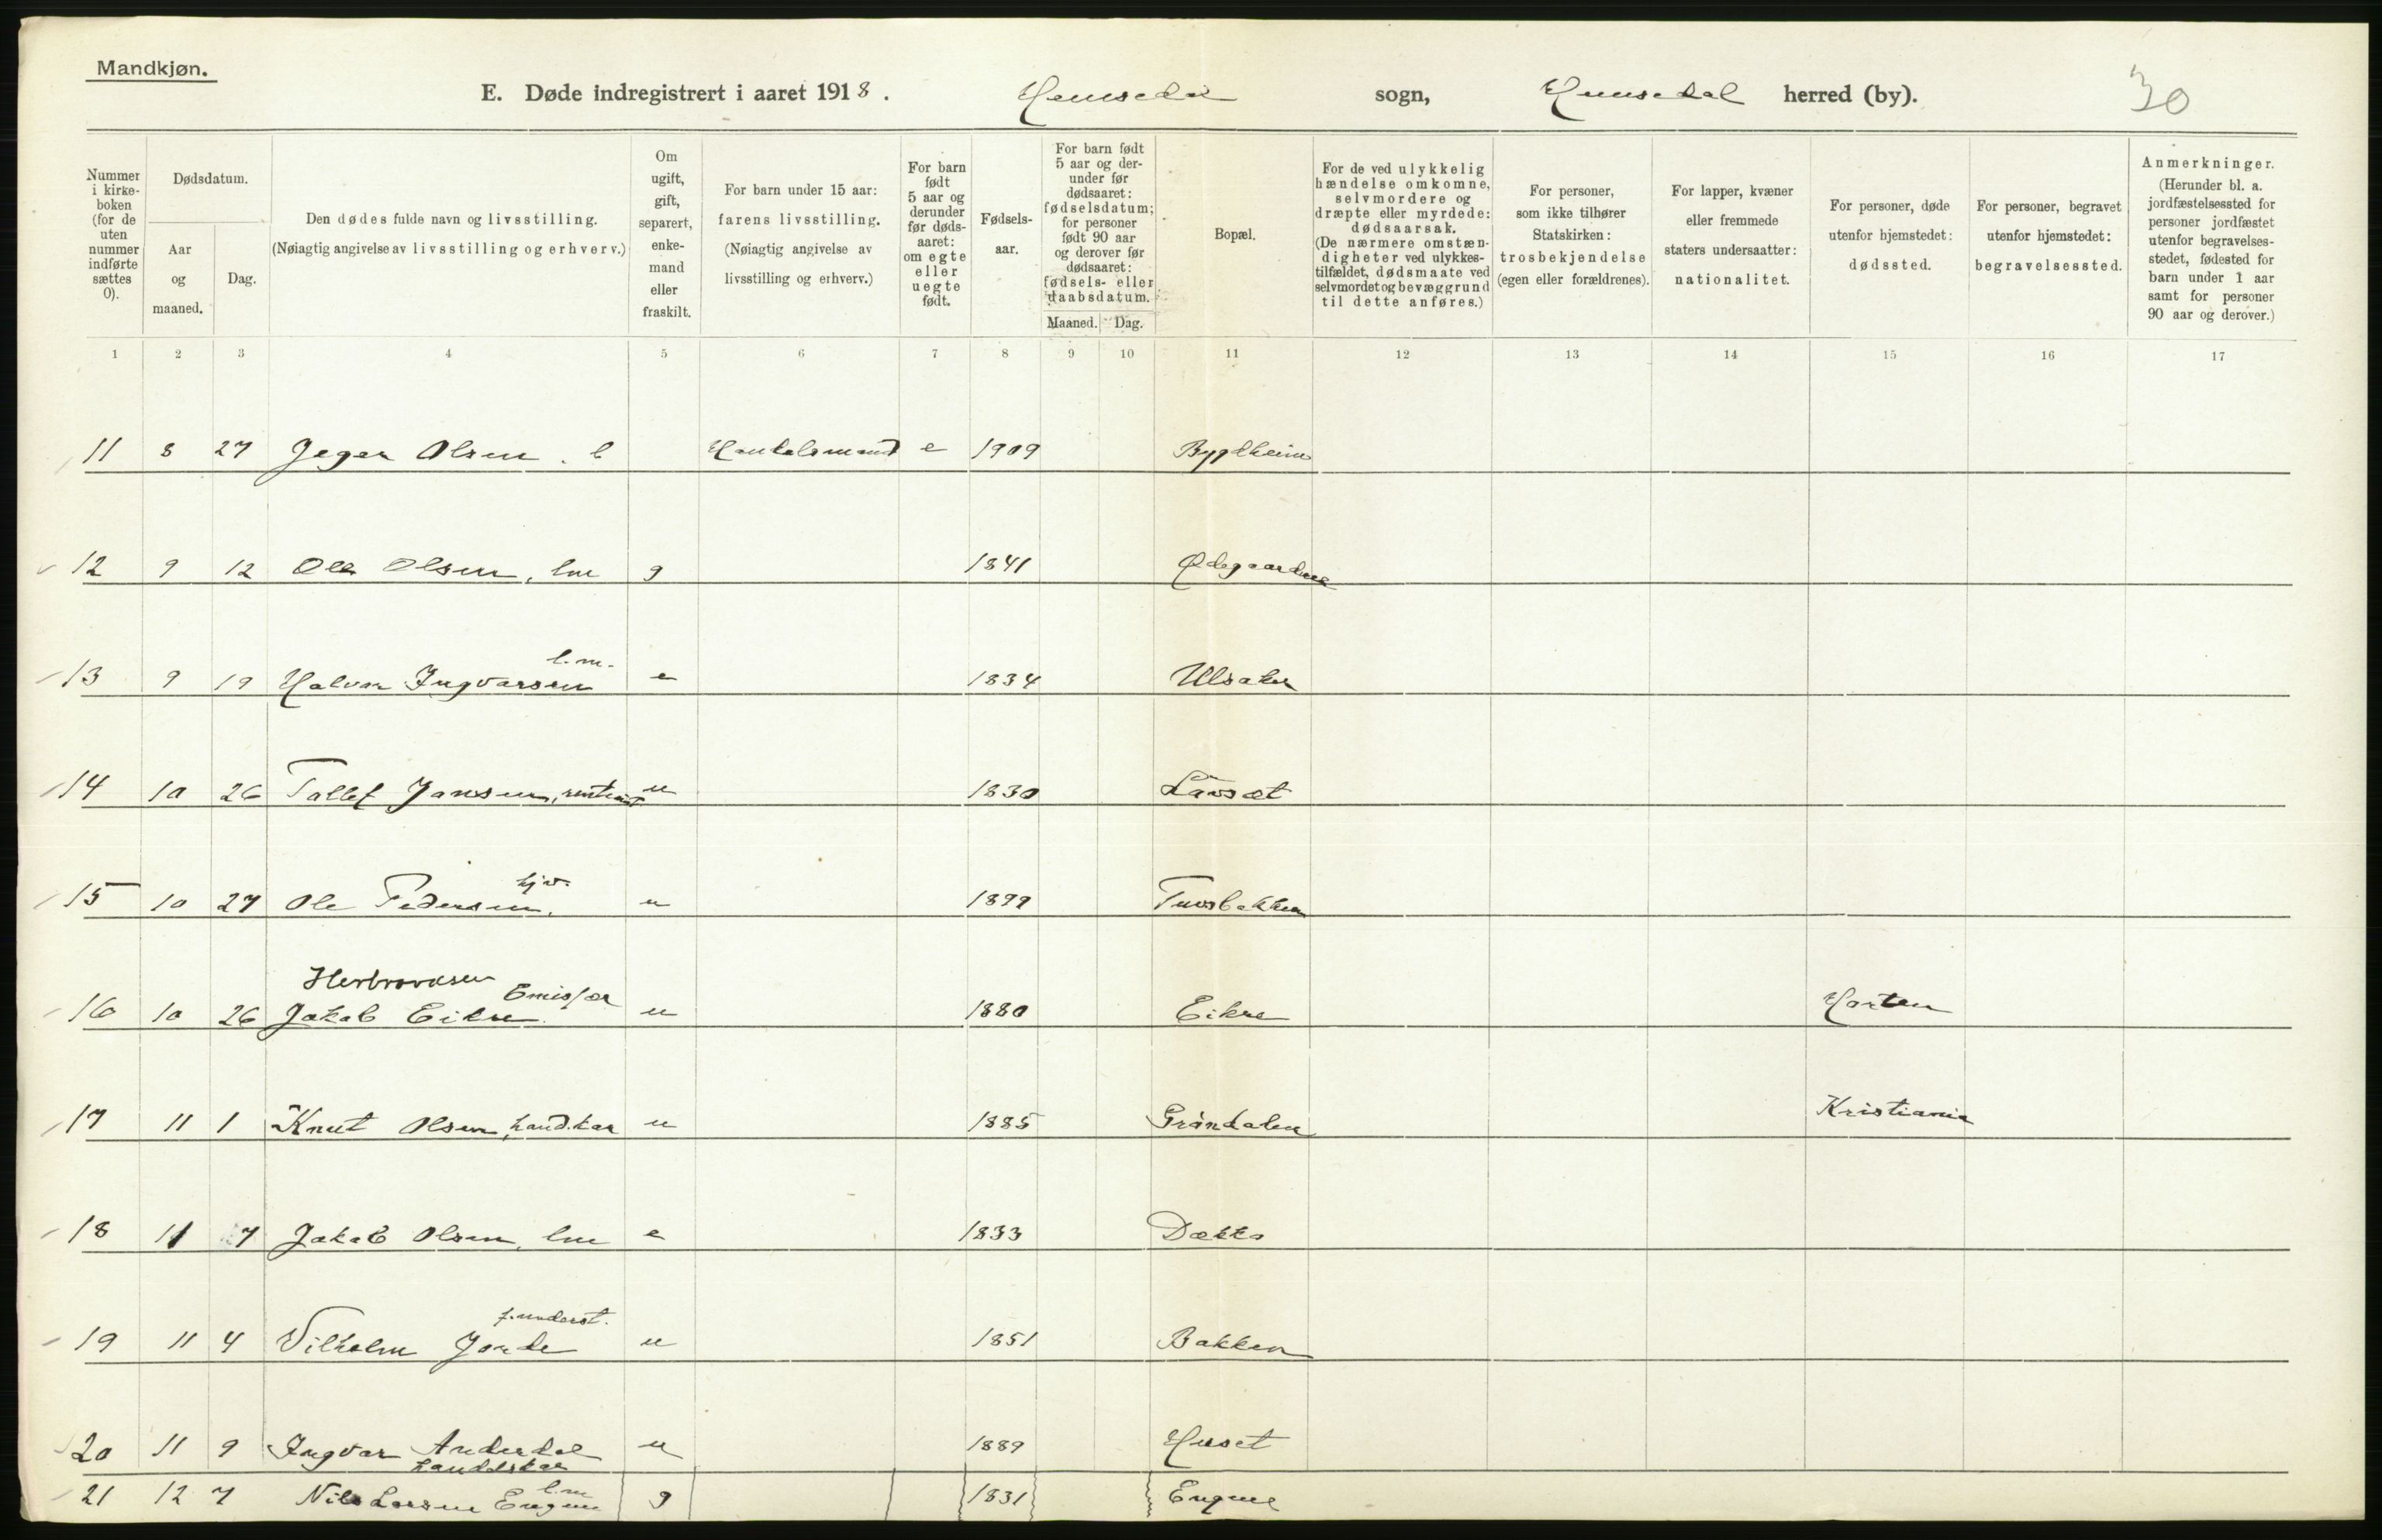 Mandkjøn.
E. Døde indregistrert i aaret 1918. Hemsedal sogn, Hemsedal herred (by). 30
Nummer i kirke-boken (for de uten nummer indførte sættes 0).
Dødsdatum.
Aar og maaned.
Dag.
Den dødes fulde navn og livsstilling.
(Nøiagtig angivelse av livsstilling og erhverv.)
Om ugift, gift, separert, enke-mand eller fraskilt.
For barn under 15 aar: farens livsstilling. (Nøiagtig angivelse av livsstilling og erhverv.)
For barn født 5 aar og derunder før døds-aaret: om egte eller uegte født.
Fødsels-aar.
For barn født 5 aar og der-under før dødsaaret: fødselsdatum; for personer født 90 aar og derover før dødsaaret: fødsels- eller daabsdatum.
Maaned. Dag.
Bopæl.
For de ved ulykkelig hændelse omkomne, selvmordere og dræpte eller myrdede: dødsaarsak. (De nærmere omstæn-digheter ved ulykkes-tilfældet, dødsmaate ved selvmordet og bevæggrund til dette anføres.)
For personer, som ikke tilhører Statskirken: trosbekjendelse (egen eller forældrenes).
For lapper, kvæner eller fremmede staters undersaatter: nationalitet.
For personer, døde utenfor hjemstedet: dødssted.
For personer, begravet utenfor hjemstedet: begravelsessted.
Anmerkninger. (Herunder bl. a. jordfæstelsessted for personer jordfæstet utenfor begravelses-stedet, fødested for barn under 1 aar samt for personer 90 aar og derover.)
1 2 3 4 5 6 7 8 9 10 11 12 13 14 15 16 17
11 8 27 Jeger Olsen. b Handelsmand e 1909 Bygdheim
12 9 12 Ole Olsen, lm g 1841 Ødegaardene
l.m.
13 9 19 Halvor Ingvarsen e 1834 Ulsaker
14 10 26 Tollef Jansen, rentenist u 1830 Lavset
hjv.
15 10 27 Ole Pedersen, u 1899 Tuvsbakken
Herbrandsen Emissær
16 10 26 Jakob Eikre u 1880 Eikre Horten
17 11 1 Knut Olsen, handskar u 1885 Gröndalen Kristiania
18 11 7 Jakob Olsen, lm e 1833 Dekko
f.underst.
19 11 4 Vilhelm Jorde u 1851 Bakken
20 11 9 Ingvar Anderdal u 1889 Huset
handelskar
l.m
21 12 7 Nils Larsen Engene g 1831 Engene